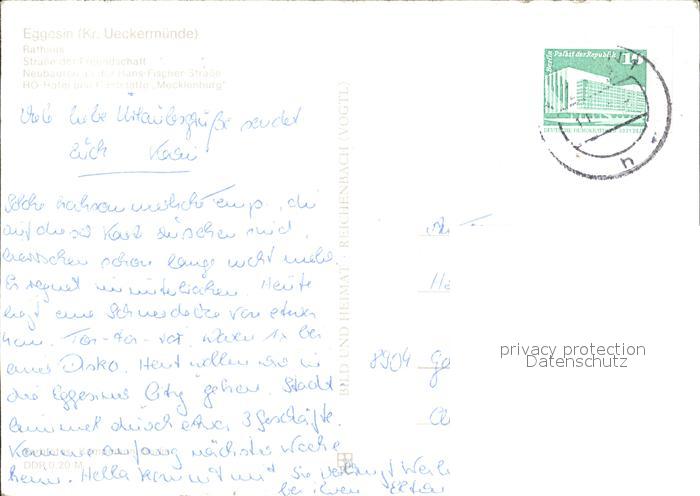 Eggesin (Kr. Ueckermünde)
Rathaus
Straße der Freundschaft
Neubauten an der Hans-Fischer-Straße
HO-Hotel und Gaststätte „Mecklenburg"
Berlin, Palast der Republik
DEUTSCHE DEMOKRATISCHE REPUBLIK
Viele liebe Urlaubsgrüße sendet
Euch
Solche, die
auf dieser Karte zu sehen sind,
herrschen schon lange nicht mehr.
Es regnet ununterbrochen. Heute
liegt eine Schneedecke von etwa
Waren 1x bei
einer Disko. Heut wollen wir in
die Eggesiner City gehen. Stadt
bummel durch etwa 3 Geschäfte.
Komme anfang nächste Woche
heim. Hella kommt mit. Sie verbringt
bei ihren Eltern
BILD UND HEIMAT · REICHENBACH (VOGTL)
8904
privacy protection
Datenschutz
DDR 0,20 M